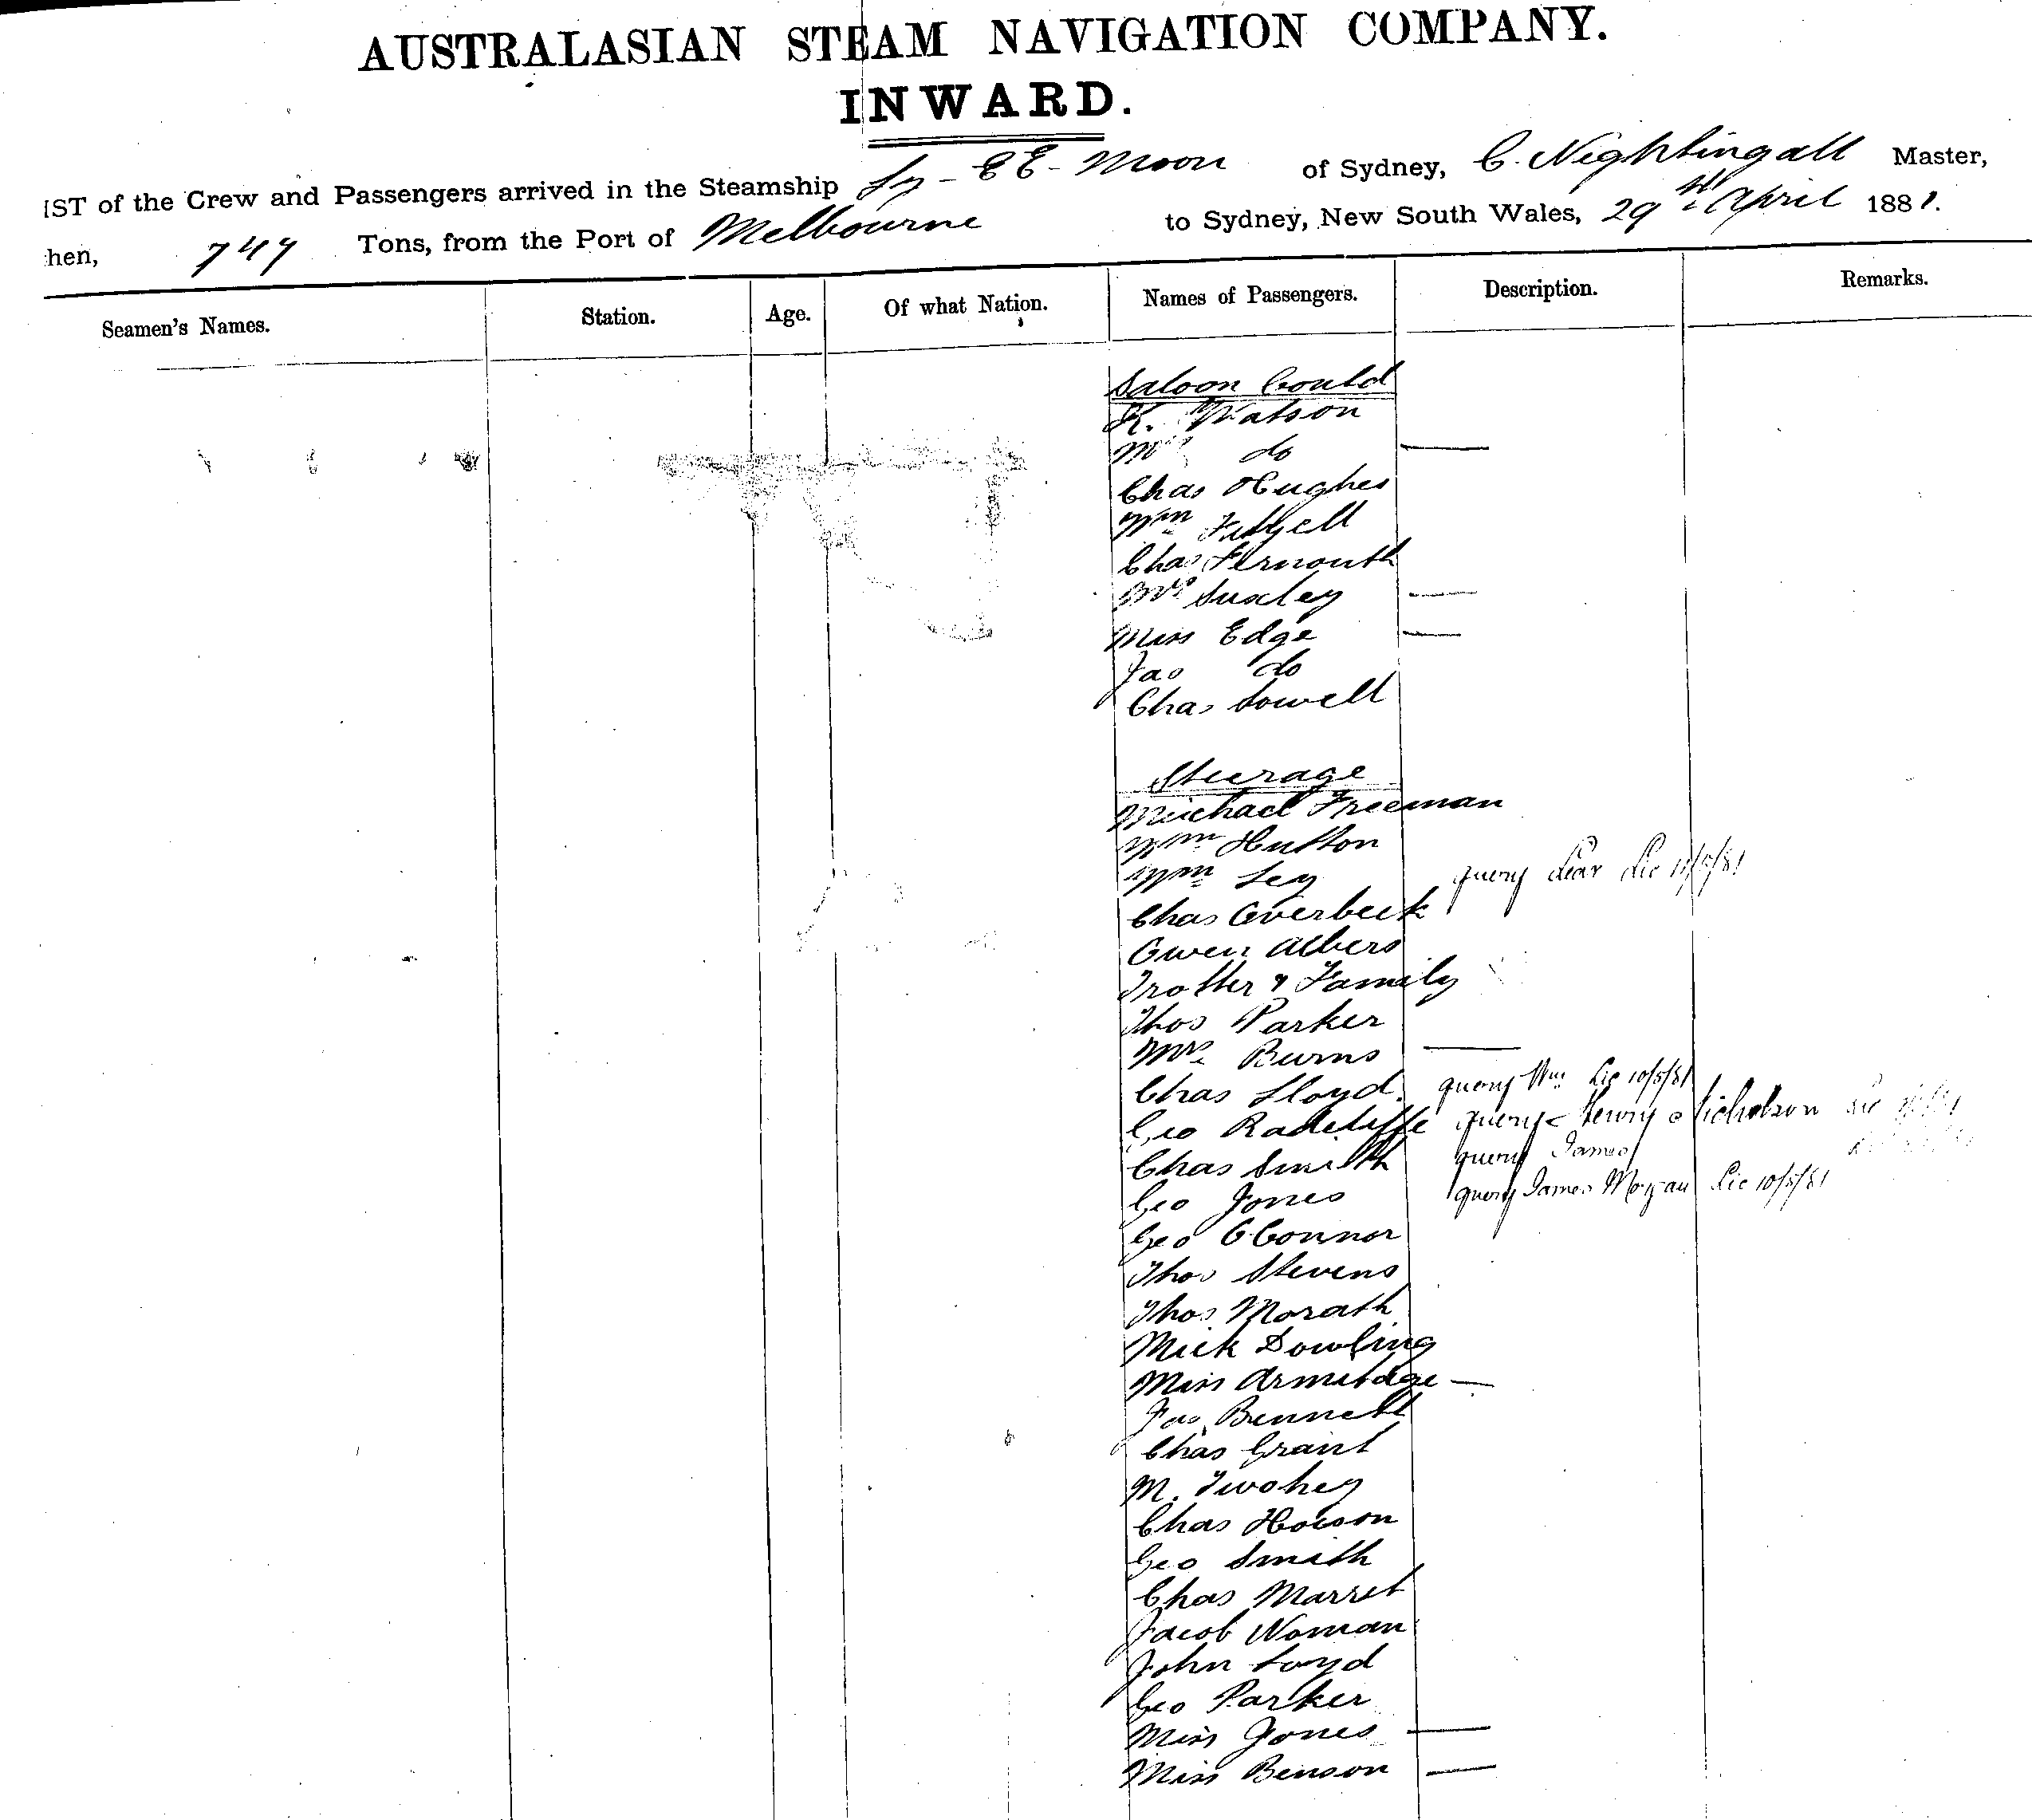 AUSTRALASIAN STEAM NAVIGATION COMPANY.
INWARD.
IST of the Crew and Passengers arrived in the Steamship Ly-EE-Moon of Sydney, C. Nightingall Master,
hen, 747 Tons, from the Port of Melbourne to Sydney, New South Wales, 29th April 1881.
Seamen's Names. Station. Age. Of what Nation. Names of Passengers. Description. Remarks.
Saloon Could
K. Watson
Mrs do —
Chas Hughes
Wm
Chas Fernouth
Mrs Suxley —
Miss Edge —
Jas do
Chas Sowell
Steerage
Michael Freeman
Wm Hutton
Wm Ley query Lear Lic
Chas Overbeck
Owen Albers
Trotter & Family
Thos Parker
Mrs Burns —
Chas Lloyd. query Wm Lic 10/5/81
Geo Radcliffe query Henry Nicholson Lic
Chas Smith query James
Geo Jones query James Morgan Lic 10/5/81
Geo OConnor
Thos Stevens
Thos Morath
Mick Dowling
Miss Armitage —
Jas Bennett
Chas Grant
M. Twohey
Chas Howson
Geo Smith
Chas Marret
Jacob Noman
John Loyd
Geo Parker
Miss Jones —
Miss Benson —